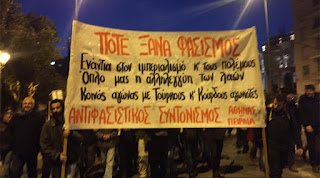 ΠΟΤΕ ΞΑΝΑ ΦΑΣΙΣΜΟΣ
Ενάντια στον ιμπεριαλισμό κ' τους πολέμους
Όπλο μας η αλληλεγγύη των λαών
Κοινός αγώνας με Τούρκους κ' Κούρδους αγωνιστές
ΑΝΤΙΦΑΣΙΣΤΙΚΟΣ ΣΥΝΤΟΝΙΣΜΟΣ ΑΘΗΝΑΣ
ΠΕΙΡΑΙΑ